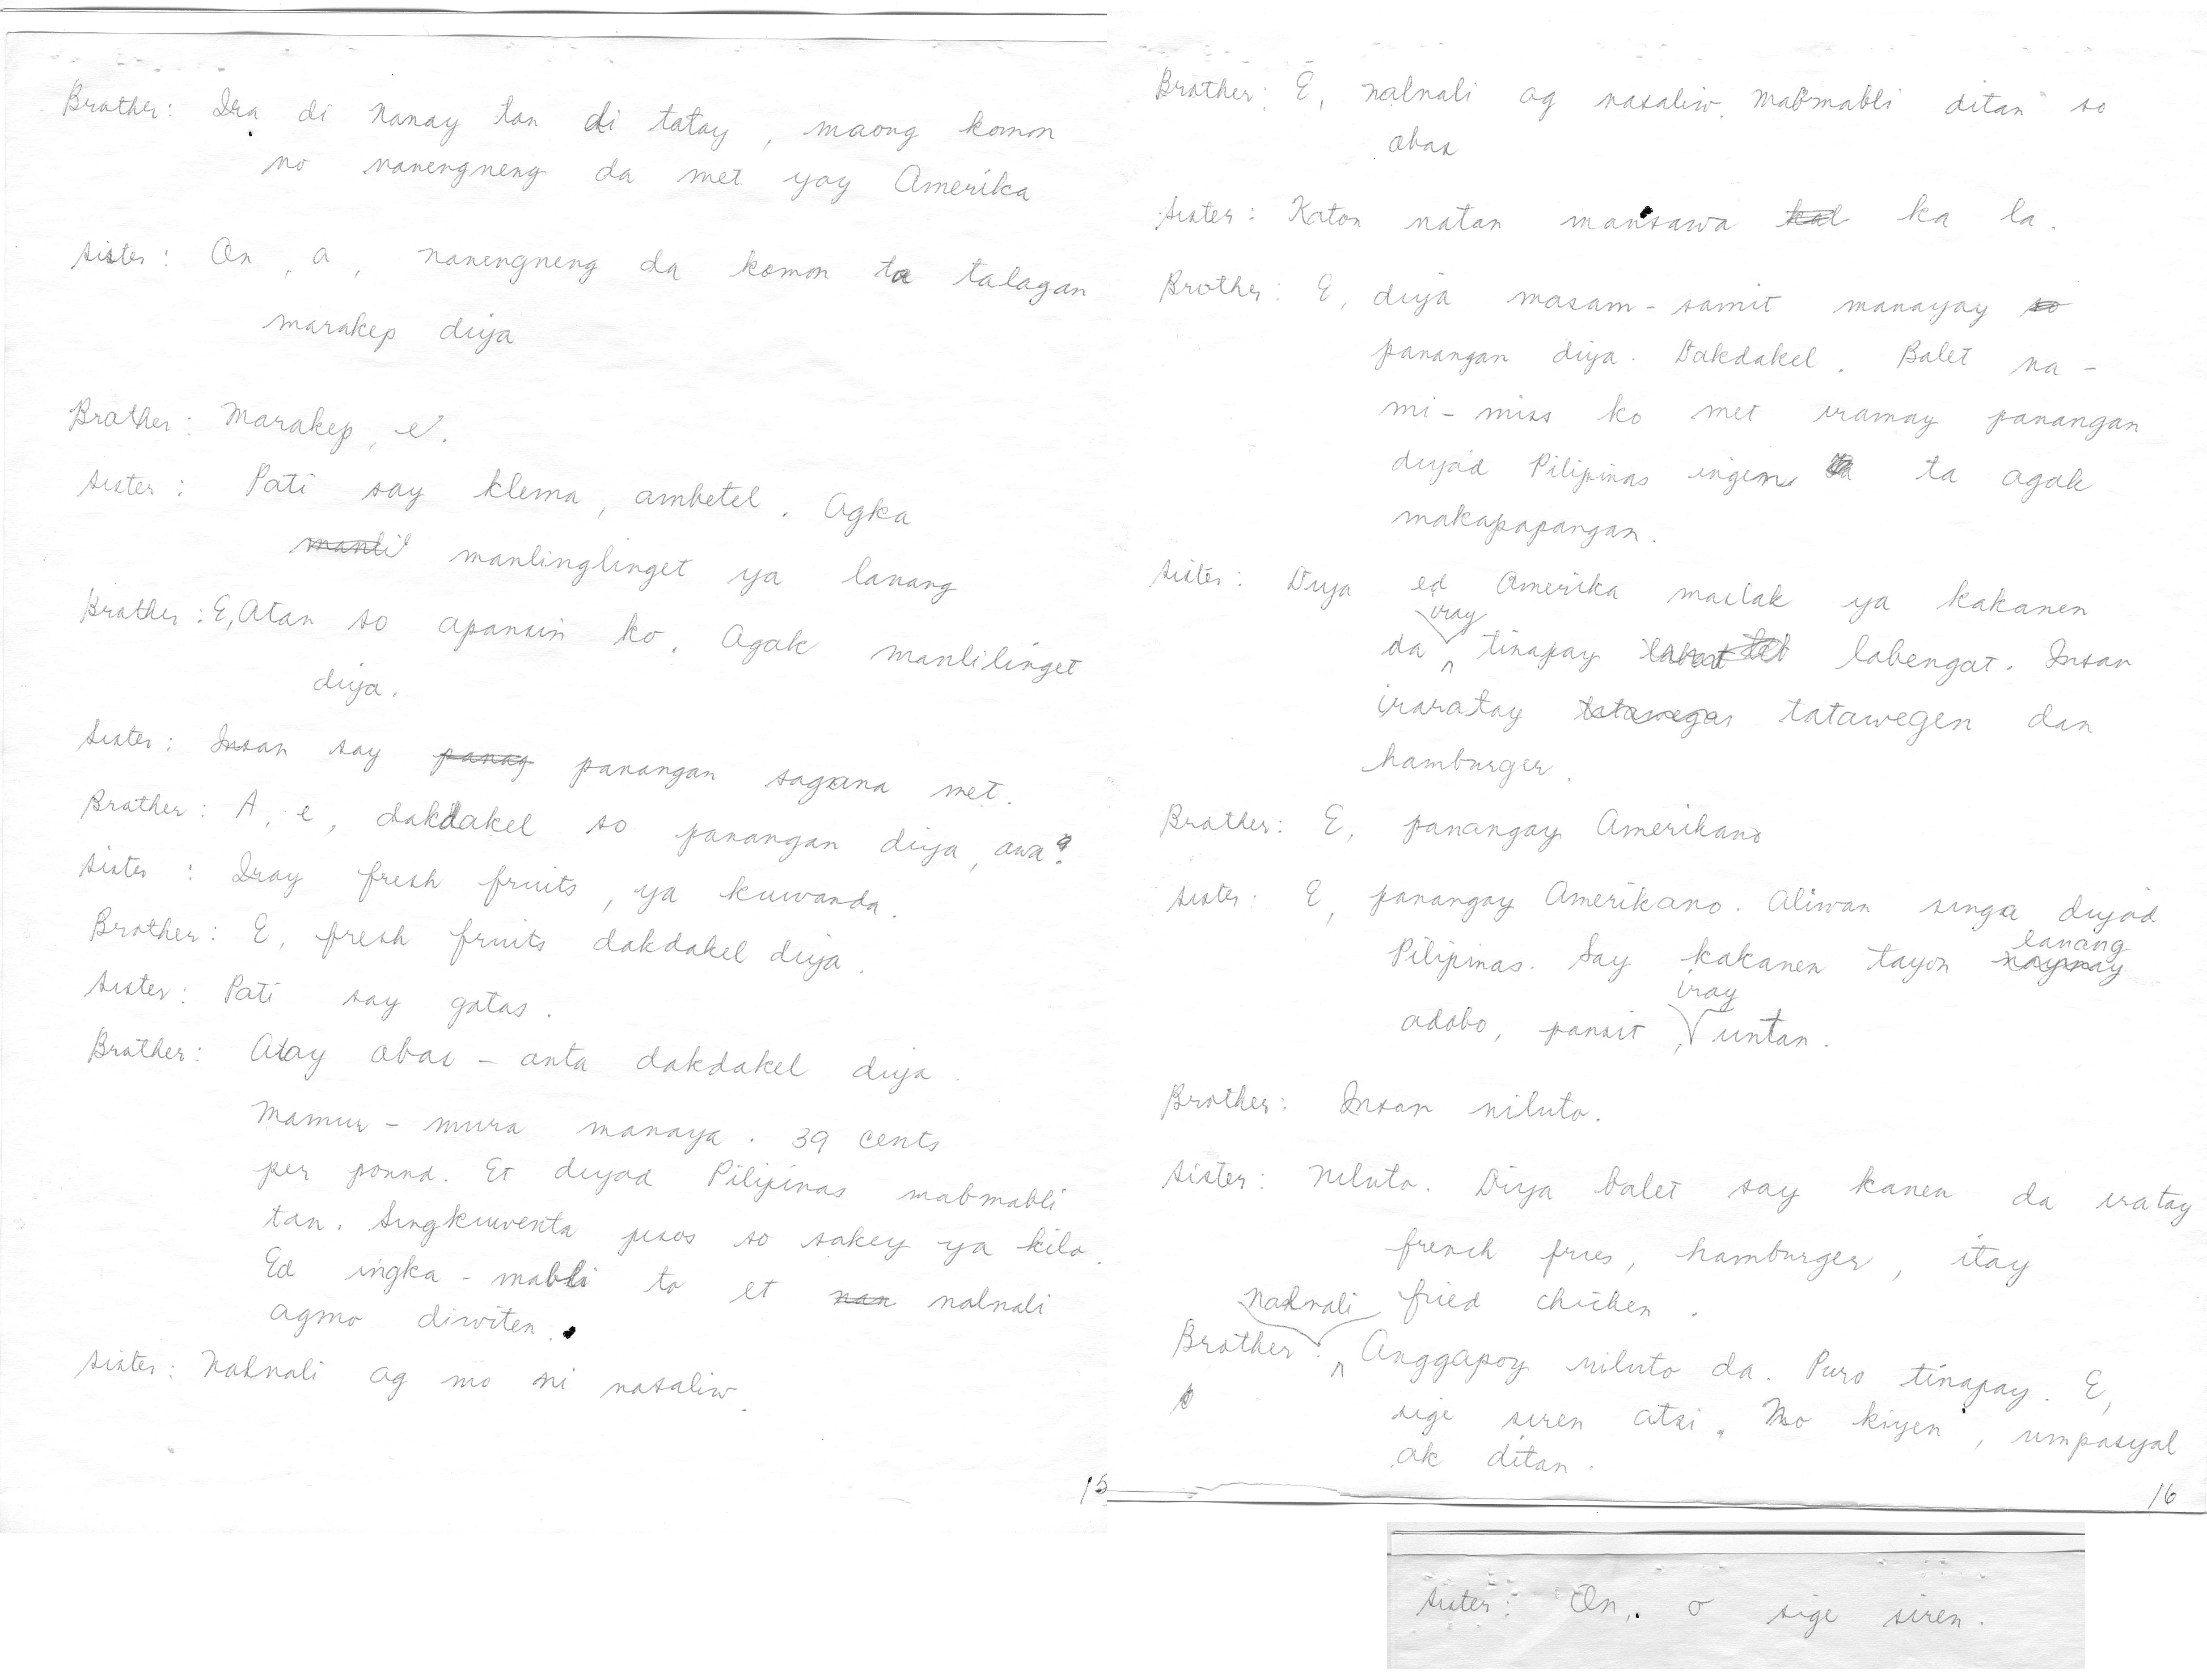 Brother: Ira di Nanay tan di tatay, maong komon
no nanengneng da met yay Amerika
Sister: On, a, nanengneng da komon ta talagan
marakep diya
Brother: Marakep, e.
Sister: Pati say klema, ambetel. Agka
manlinglinget ya lanang
Brother: E, Atan so apansin ko. Agak manlilinget
diya.
Sister: Insan say panangan sagana met.
Brother: A, e, dakdakel so panangan diya, awa?
Sister: Iray fresh fruits, ya kuwanda.
Brother: E, fresh fruits dakdakel diya.
Sister: Pati say gatas.
Brother: Atay obas - anta dakdakel diya.
Mamur - mura manaya. 39 cents
per pound. Et diyad Pilipinas mabmabli
tan. Singkuwenta pisos so sakey ya kilo.
Ed ingka - mabli to et nalnali
agmo diwiten.
Sister: Nalnali ag mo ni nasaliw.
15
Brother: E, nalnali ag nasaliw. Mabmabli ditan so
obas
Sister: Katon natan mansawa ka la.
Brother: E, diya masam - samit manayay
panangan diya. Dakdakel. Balet na -
mi - miss ko met iramay panangan
diyad Pilipinas ingen ta agak
makapapangan.
Sister: Diya ed Amerika maslak ya kakanen
da iray tinapay labengat. Insan
iraratay tatawegen dan
hamburger.
Brother: E, panangay Amerikano
Sister: E, panangay Amerikano. Aliwan singa diyad
Pilipinas. Say kakanen tayon lanang
adobo, pansit, iray untan.
Brother: Insan niluto.
Sister: Niluto. Diya balet say kanen da iratay
french fries, hamburger, itay
fried chicken.
Brother: Nalnali Anggapoy niluto da. Puro tinapay. E,
sige siren atsi. No kiyen, umpasyal
ak ditan.
16
Sister: On, o sige siren.